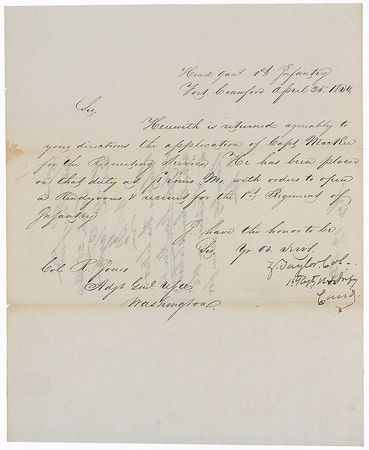 Head Qrs 1st Infantry
Fort Crawford April 25. 1834
Sir,
Herewith is returned agreeably to
your directions the application of Capt. MacRee
for the Recruiting Service. He has been placed
on that duty at St Louis Mo. with orders to open
a Rendezvous, & recruit for the 1st Regiment of
Infantry.
I have the honor to be
Sir, Yr Ob. Servt.
Z. Taylor. Col.
1st Regt
Comd.
Col. R. Jones
Adjt Genl
Washington.